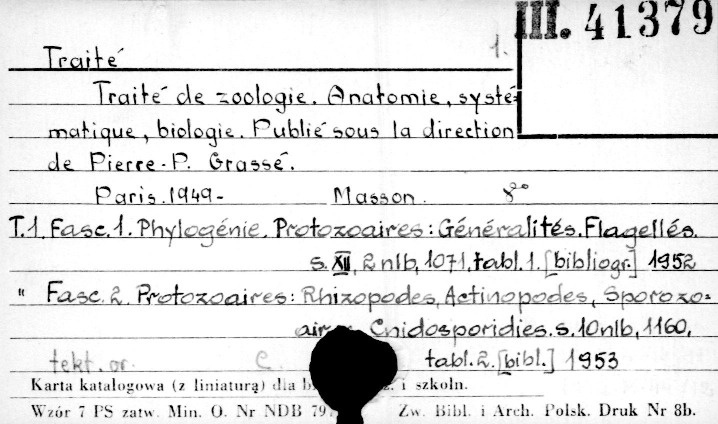 III. 41379
1.
Traité
Traité de zoologie. Anatomie, systé=
matique, biologie. Publié sous la direction
de Pierre-P. Grassé.
Paris. 1949- Masson. 8°
T.1. Fasc. 1. Phylogénie. Protozoaires: Généralités. Flagellés.
s. XII, 2 nlb, 1071, tabl. 1. [bibliogr.] 1952
" Fasc. 2. Protozoaires: Rhizopodes, Actinopodes, Sporozo=
Cnidosporidies. s. 10 nlb, 1160,
tekt. or. C. tabl. 2. [bibl.] 1953
Karta katalogowa (z liniaturą) dla i szkoln.
Wzór 7 PS zatw. Min. O. Nr NDB Zw. Bibl. i Arch. Polsk. Druk Nr 8b.